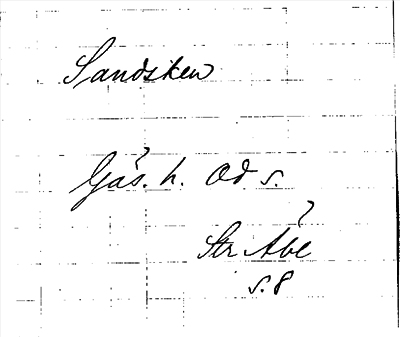 Sandsken
Gäs. h. Od s.
Str Åbe
s. 8